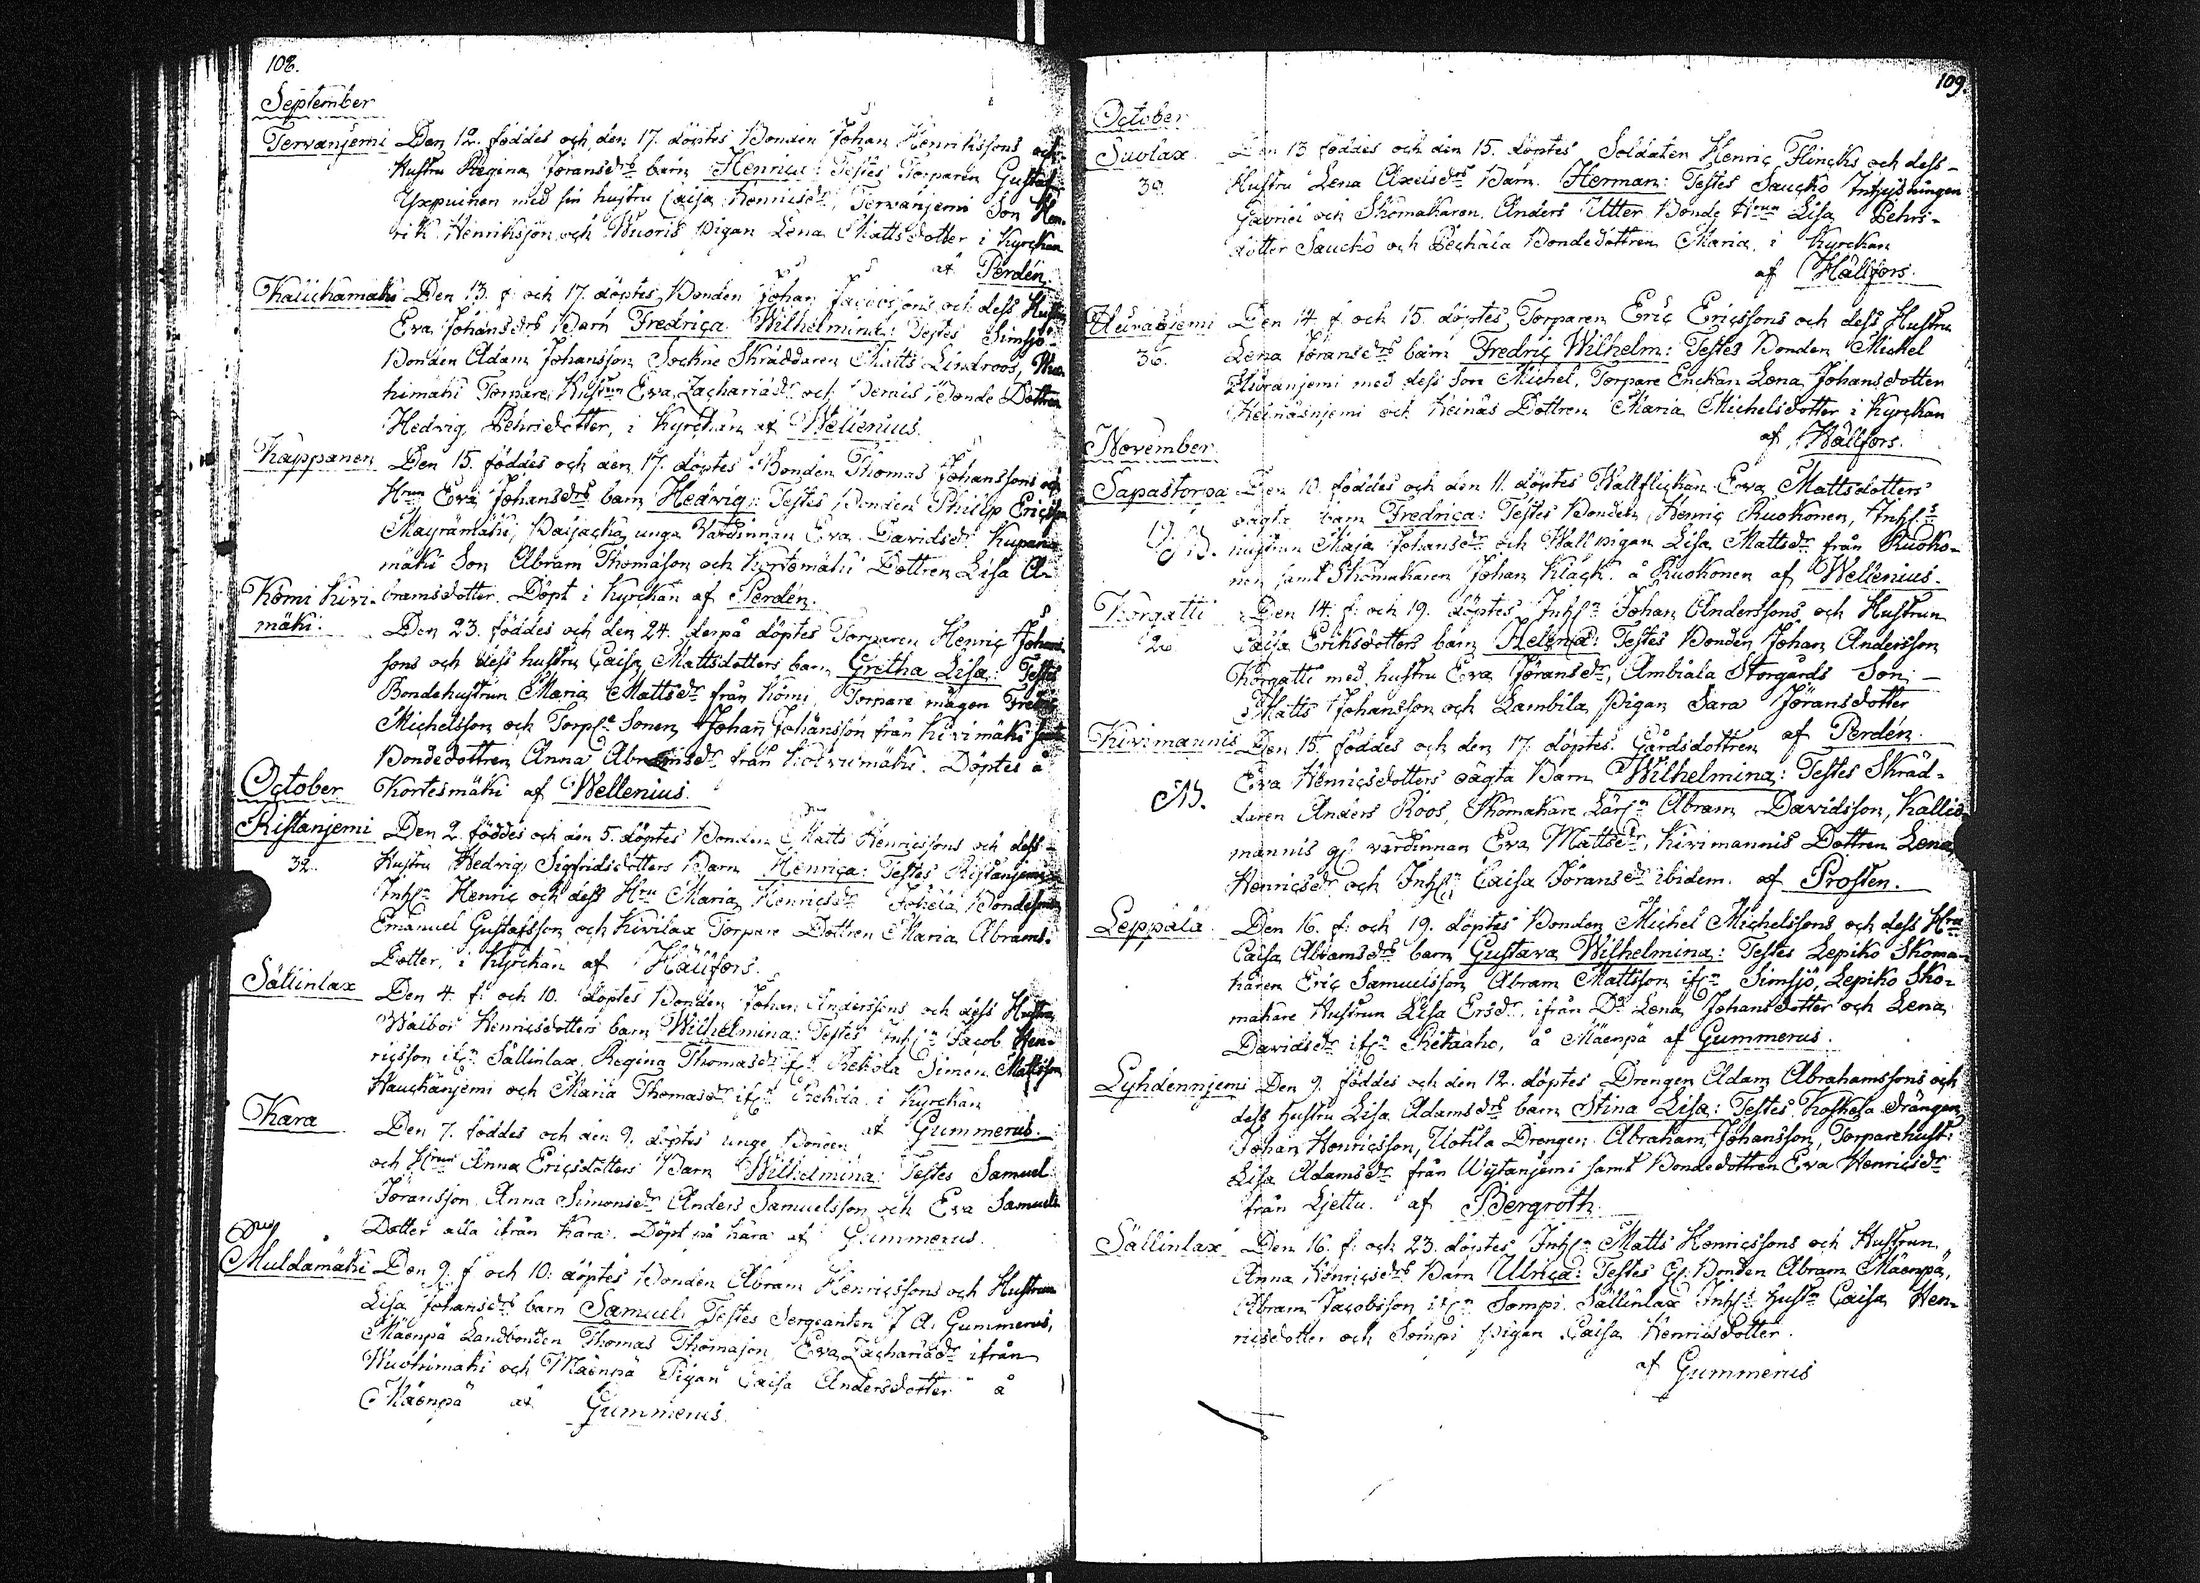 108.
September
Tervanjemi Den 12. föddes och den 17. döptes Bonden Johan Henrikssons och
Hustru Regina Jöransdrs barn Henrica: Testes Torparen Gustaf
med sin hustru Caisa Tervanjemi Son Hen-
rik Henriksson och Wuoris Pigan Lena Matts dotter i Kyrckan
af Perdén
Kauchamäki Den 13. f. och 17. döptes Bonden Johan Jacobssons och dess Hustru
Eva Johansdrs Barn Fredrica Wilhelmina: Testes Simsjö
Bonden Adam Johansson Sockne Skräddaren Matts Lindroos,
himäki Torpare Hustrun Eva Zachariædr och Bonde Dottren
Hedvig Pehrsdotter, i Kyrckan af Wellenius.
Kappanen Den 15. föddes och den 17. döptes Bonden Thomas Johanssons och
Hrun Eva Johansdrs barn Hedvig: Testes Bonden Philip Ericsson
Mayrämäki, unga Värdinnan Eva Davidsdr
mäki Son Abram Thomasson och Kortemäki Dottren Lisa A-
Komi Kivi- bramsdotter. Döpt i Kyrckan af Perdén.
mäki. Den 23. föddes och den 24. derpå döptes Torparen Henric Johans
sons och dess hustru Caisa Mattsdotters barn Gretha Lisa: Testes
Bondehustrun Maria Mattsdr från Komi, Torpare mågen Fredric
Michelsson och Torp Sonen Johan Johansson från Kivimäki samt
Bondedottren Anna Abramsdr från Döptes å
October Kortesmäki af Wellenius.
Ristanjemi Den 2. föddes och den 5. döptes Bonden Matts Henricssons och dess
32. Hustru Hedvig Sigfridsdotters Barn Henrica: Testes Ristanjemi
Inhs Henric och dess Hru Maria Henricsdr Bondeson
Emanuel Gustafsson och Kivilax Torpare Dottren Maria Abrams-
Dotter, i Kyrckan af Hällfors.
Sällinlax Den 4. f: och 10. döptes Bonden Johan Anderssons och dess Hustru
Walbor Henricsdotters barn Wilhelmina: Testes Inhs Jacob Hen-
ricsson Sällinlax, Regina Thomasdr Rekola Simon Mattsson
Hauckanjemi och Maria Thomasdr Rekola i Kyrckan
af Gummerus.
Kara Den 7. föddes och den 9. döptes unge Bonden
och Hrun Anna Ericsdotters Barn Wilhelmina: Testes Samuel
Jöransson, Anna Simonsdr Anders Samuelsson och Eva Samuels
Dotter alla ifrån Kara. Döpt på Kara af Gummerus.
Muldamäki Den 9. f och 10: döptes Bonden Abram Henricssons och Hustrun
Lisa Johansdrs barn Samuel: Testes Sergeanten J A: Gummerus,
Mäenpä Landbonden Thomas Thomasson, Eva Zachariædr ifrån
Wuohimäki och Mäenpä Pigan Caisa Andersdotter å
Mäenpä af Gummerus.
109.
October
Suolax Den 13 föddes och den 15. döptes Soldaten Henric Flincks och dess
39. Hustru Lena Axelsdrs Barn. Herman: Testes Saucko Inhysingen
Gabriel och Skomakaren Anders Utter Bonde Hrun Lisa Pehrs-
dotter Saucko och Bondedottren Maria, i Kyrckan
af Hällfors.
Den 14. f och 15. döptes Torparen Eric Ericssons och dess Hustru
36. Lena Jöransdrs barn Fredric Wilhelm: Testes Bonden Michel
med dess Son Michel, Torpare Enckan Lena Johansdotter
Heinäsnjemi och Heinäs Dottren Maria Michelsdotter i Kyrckan
af Hällfors.
November
Sapastorpa Den 10. föddes och den 11. döptes Wallflickan Eva Mattsdotters
oägta barn Fredrica: Testes Bonden Henric Ruokonen, Inhs
N. hustrun Maja Johansdr och Wall pigan Lisa Mattsdr från Ruoko-
nen samt Skomakaren Johan Klack. å Ruokonen af Wellenius.
Korgatti Den 14. f. och 19. döptes Inhs Johan Anderssons och Hustrun
26. Caisa Eriksdotters barn Helena: Testes Bonden Johan Andersson
Korgatti med hustru Eva Jöransdr, Ambiala Storgårds Son
Matts Johansson och Lambila Pigan Sara Jöransdotter
af Perdén.
Kirimannis Den 15. föddes och den 17. döptes. Gårdsdottren
Eva Henricsdotters oägta Barn Wilhelmina: Testes Skräd-
N. daren Anders Roos, Skomakare Abram Davidsson, Kallis
mannis gl. värdinnan Eva Mattsdr, Kirimannis Dottren Lena
Henricsdr och Inhs Caisa Jöransdr ibidem. af Prosten.
Leppälä Den 16. f: och 19. döptes Bonden Michel Michelssons och dess Hru
Caisa Abramsdrs barn Gustava Wilhelmina: Testes Lepiko Skoma-
karen Eric Samuelsson Abram Mattsson Simsjö, Lepiko Sko-
makare Hustrun Lisa Ersdr. ifrån Do Lena Johansdotter och Lena
Davidsdr å Mäenpä af Gummerus.
Lyhdennjemi Den 9. föddes och den 12. döptes Drengen Adam Abrahamssons och
dess Hustru Lisa Adamsdrs barn Stina Lisa: Testes Koskela Drängen
Johan Henricsson, Uotila Drengen Abraham Johansson, Torparehust:
Lisa Adamsdr från samt Bondedottren Eva Henricsdr
från af Bergroth.
Sällinlax Den 16. f: och 23. döptes Inhs Matts Henricssons och Hustrun
Anna Henricsdrs Barn Ulrica: Testes Gl. Bonden Abram Mäenpä,
Abram Jacobsson Sompi Sällinlax Inhs Hustn Caisa Hen-
ricsdotter och Sompi Pigan Caisa Henricsdotter.
af Gummerus